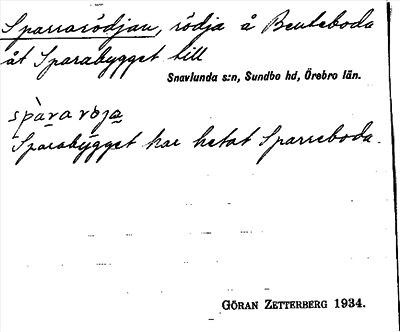 Sparrarödjan, rödja å Benteboda
åt Sparabygget till
Snavlunda s:n, Sundbo hd, Örebro län.
spàra ròja
Sparabygget har hetat Sparreboda.
GÖRAN ZETTERBERG 1934.